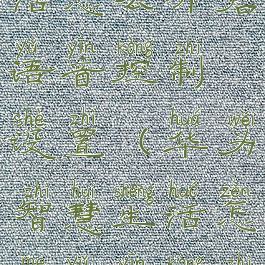 yǔ yīn kòng zhì
语音控制
shè zhì huá wéi
设置（华为
zhì huì shēng huó zěn
智慧生活怎